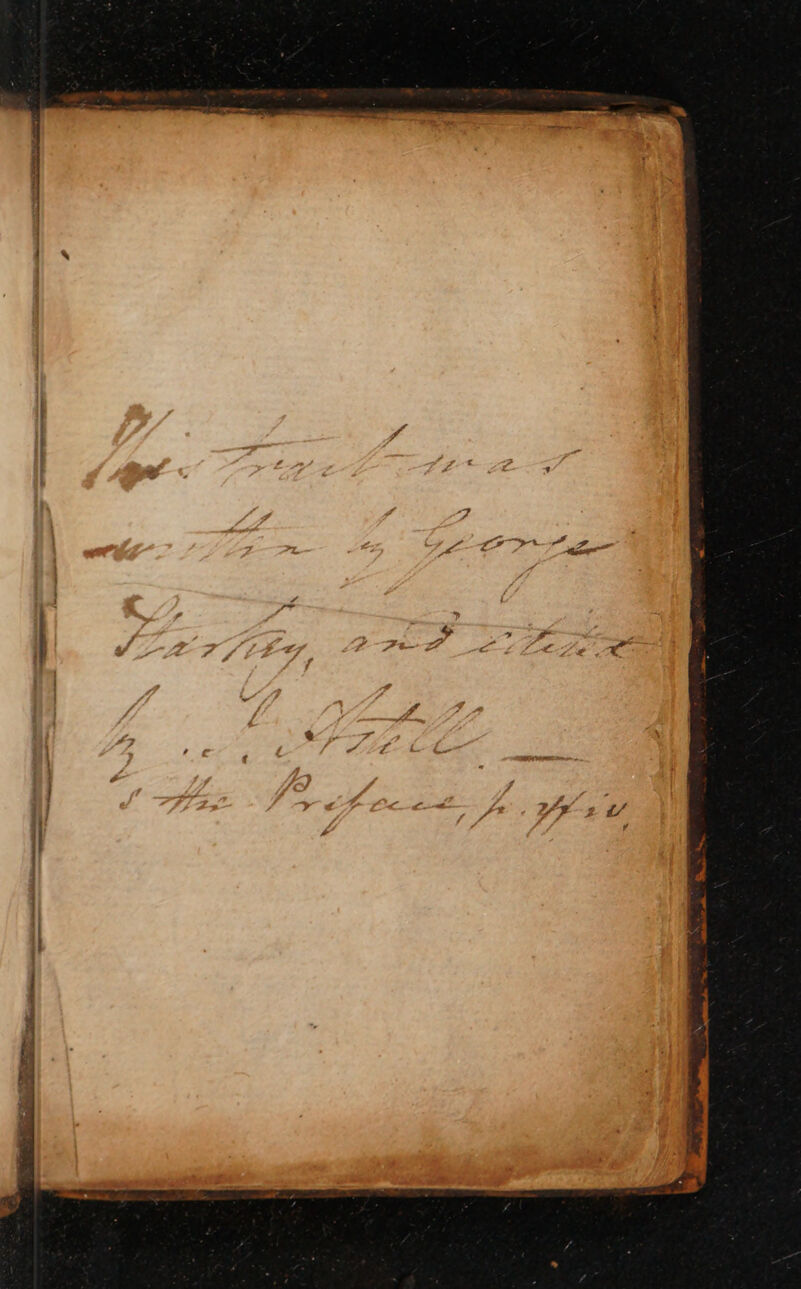 This tract was
written by George
Starkey, and edited
by . J. Astell. —
s the Preface, p.